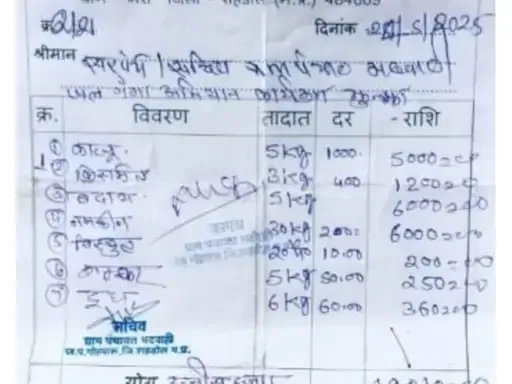 जिला - शहडोल (म.प्र.) 484669
क्र 2/21 दिनांक 25/5/2025
श्रीमान सरपंच / सचिव ग्राम पंचायत भदवाही
जल गंगा अभियान
क्र. विवरण तादात दर राशि
① काजू 5 kg 1000 5000=00
② किसमिस 3 kg 400 1200=00
③ बदाम 5 kg 6000=00
④ नमकीन 30 kg 200 6000=00
⑤ बिस्कुट 20 10.00 200=00
⑥ शक्कर 5 kg 50.00 250=00
⑦ दूध 6 kg 60.00 360=00
सरपंच
ग्राम पंचायत भदवाही
सचिव
ग्राम पंचायत भदवाही
ज.प.गोहपारू,जि.शहडोल म.प्र.
योग